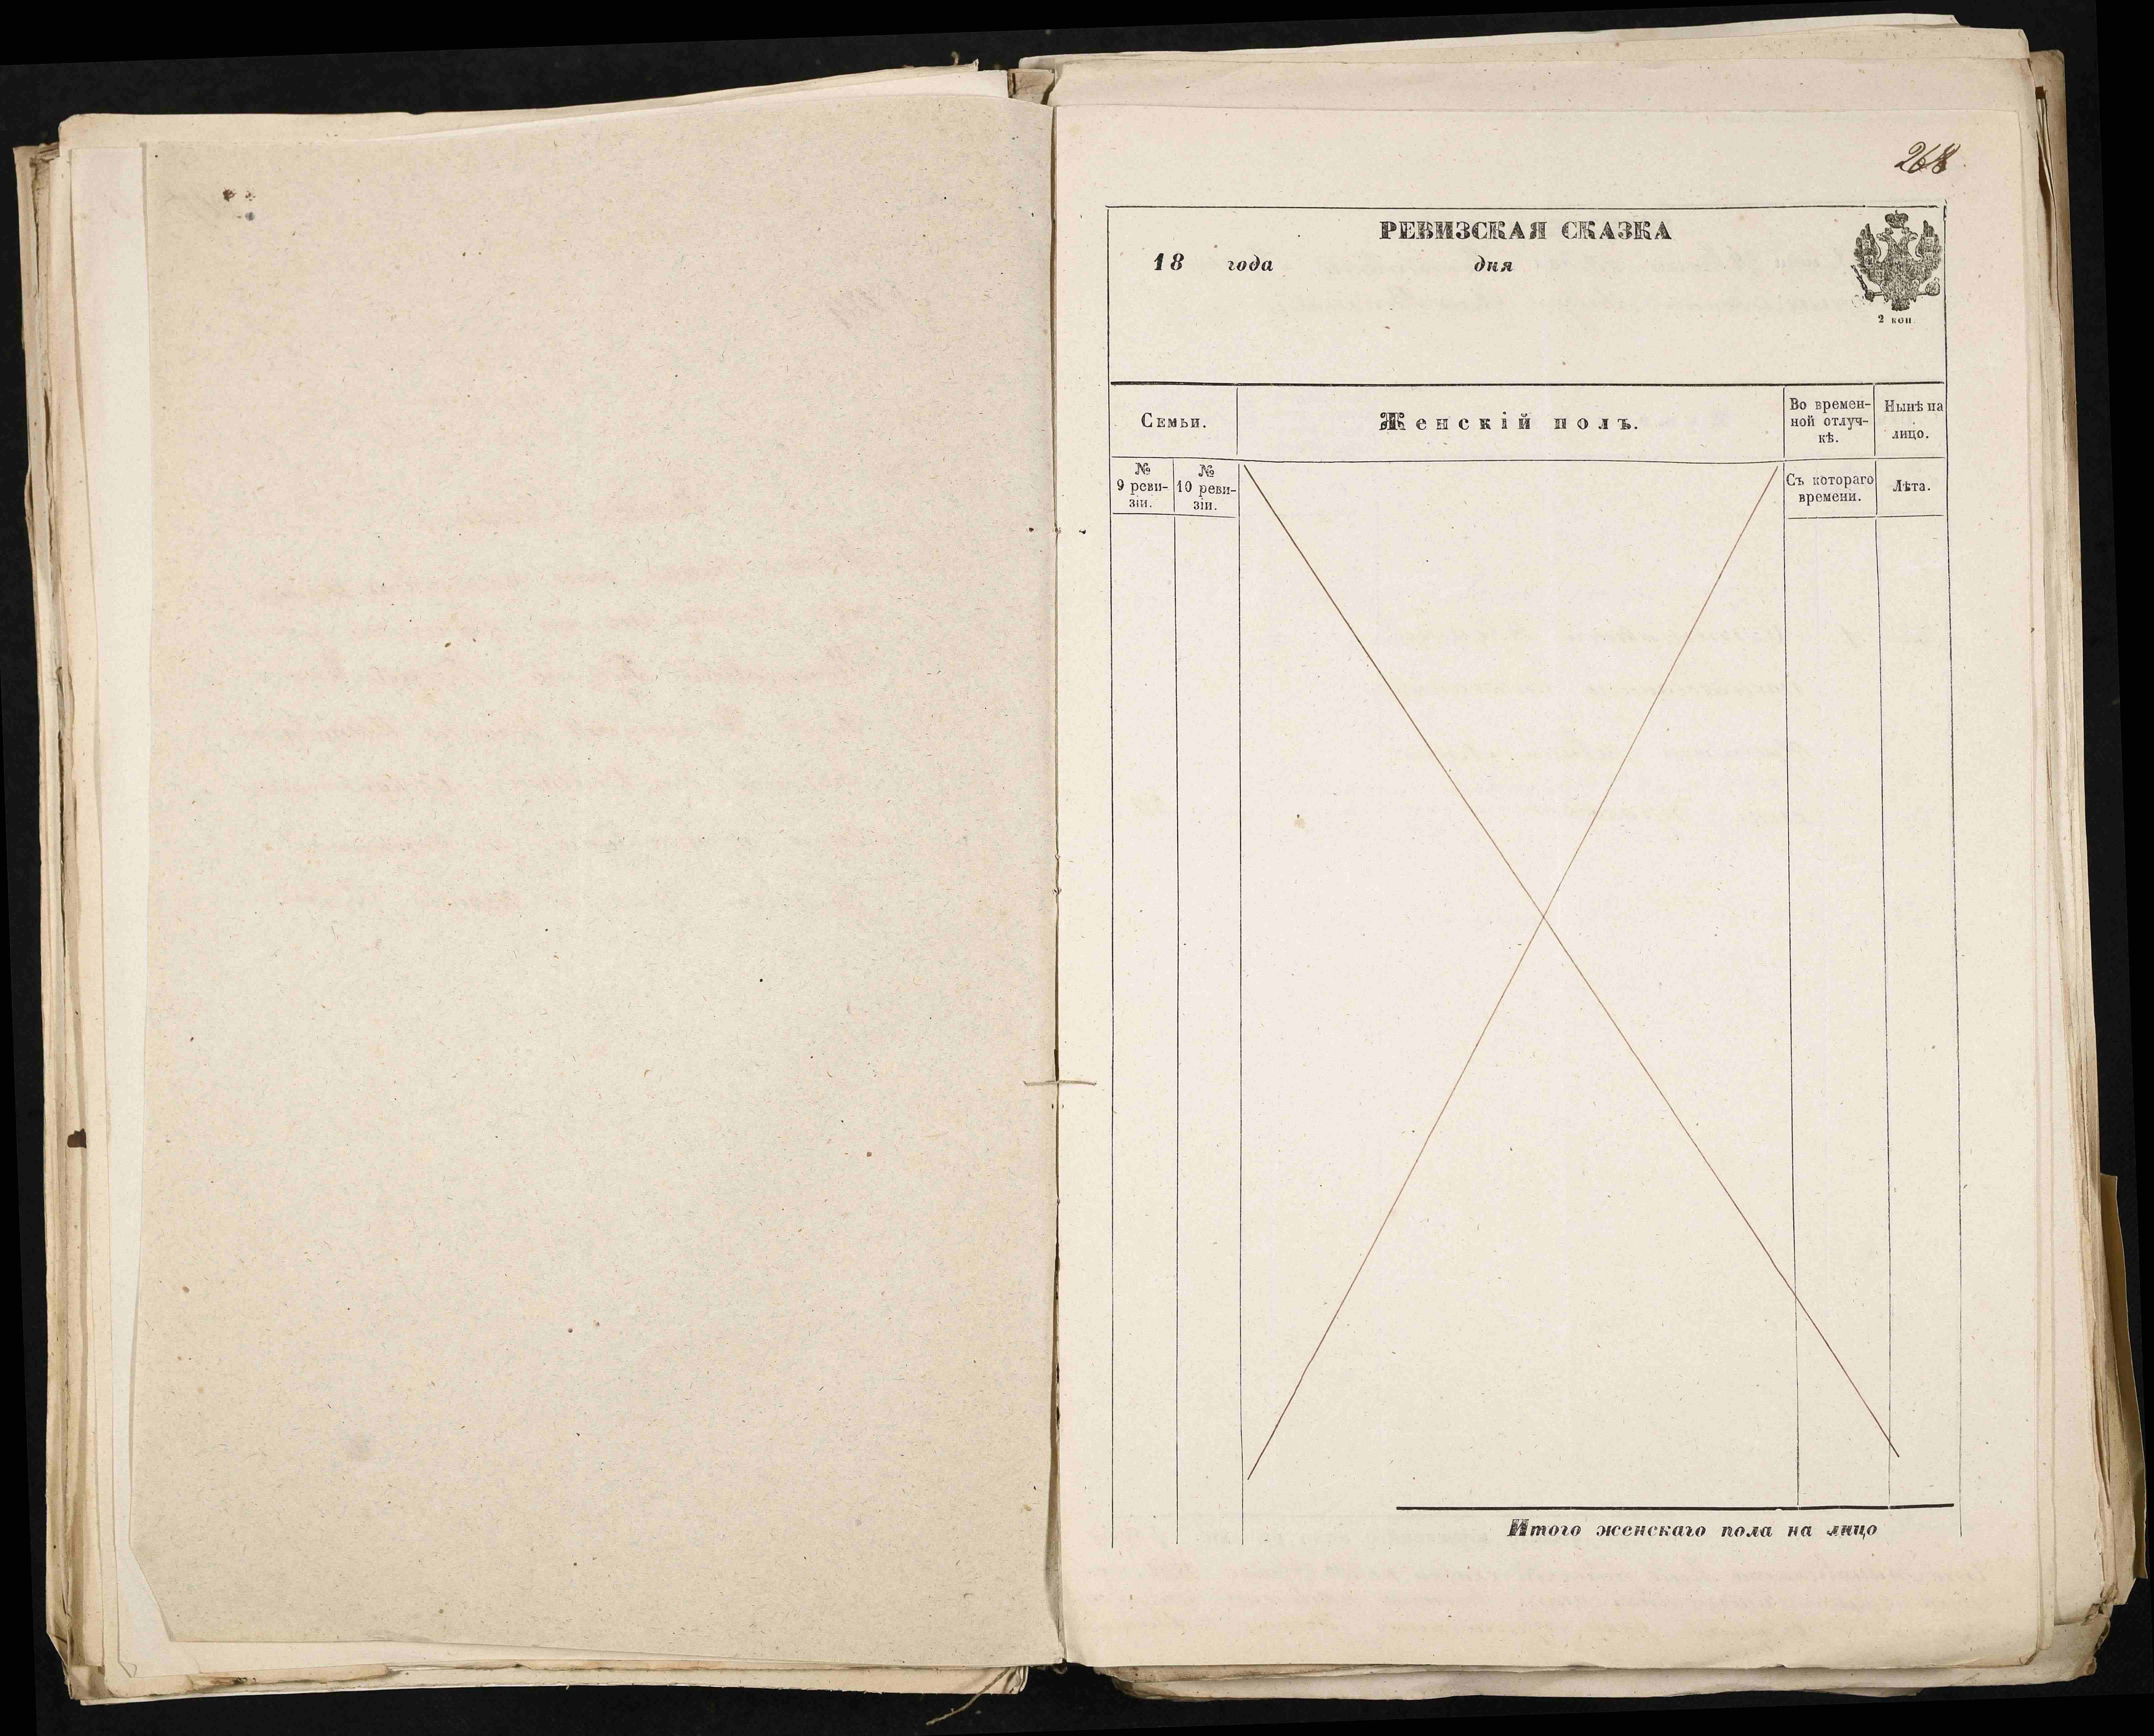 268
РЕВИЗСКАЯ СКАЗКА
18 года дня
2 коп.
Семьи.
Женскій полъ.
Во времен-
ной отлуч-
кѣ.
Нынѣ на
лицо.
№
9 реви-
зіи.
№
10 реви-
зіи.
Съ котораго
времени.
Лѣта.
Итого женскаго пола на лицо